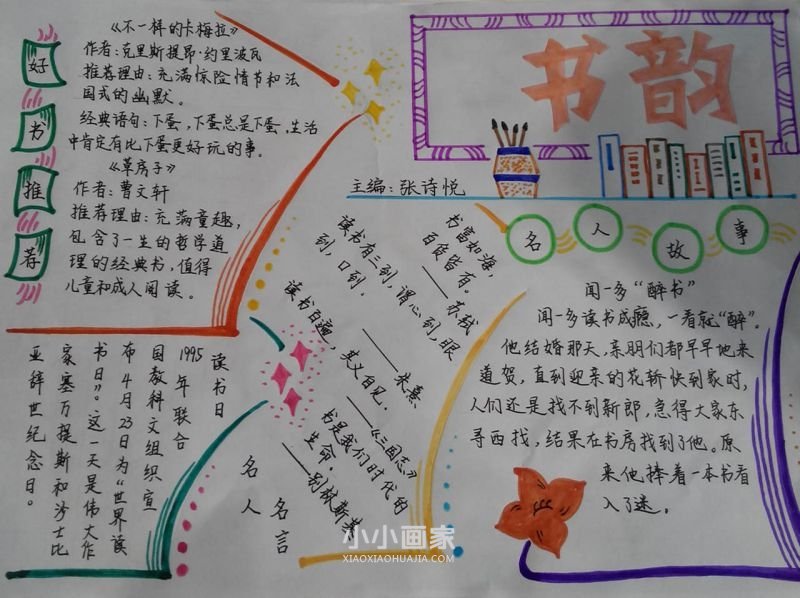 书韵
主编:张诗悦
好
书
推
荐
《不一样的卡梅拉》
作者:克里斯提昂·约里波瓦
推荐理由:充满惊险情节和法
国式的幽默。
经典语句:下蛋,下蛋总是下蛋,生活
中肯定有比下蛋更好玩的事。
《草房子》
作者:曹文轩
推荐理由:充满童趣,
包含了一生的哲学道
理的经典书,值得
儿童和成人阅读。
读书日
1995年联合
国教科文组织宣
布4月23日为“世界读
书日”。这一天是伟大作
家塞万提斯和沙士比
亚辞世纪念日。
名人
名言
书富如海,
百货皆有。
——苏轼
读书有三到,谓心到,眼
到,口到。
——朱熹
读书百遍,其义自见。
——《三国志》
书是我们时代的
生命。
——别林斯基
名
人
故
事
闻一多“醉书”
闻一多读书成瘾,一看就“醉”。
他结婚那天,亲朋们都早早地来
道贺,直到迎亲的花轿快到家时,
人们还是找不到新郎,急得大家东
寻西找,结果在书房找到了他。原
来他捧着一本书看
入了迷。
小小画家
XIAOXIAOHUAJIA.COM